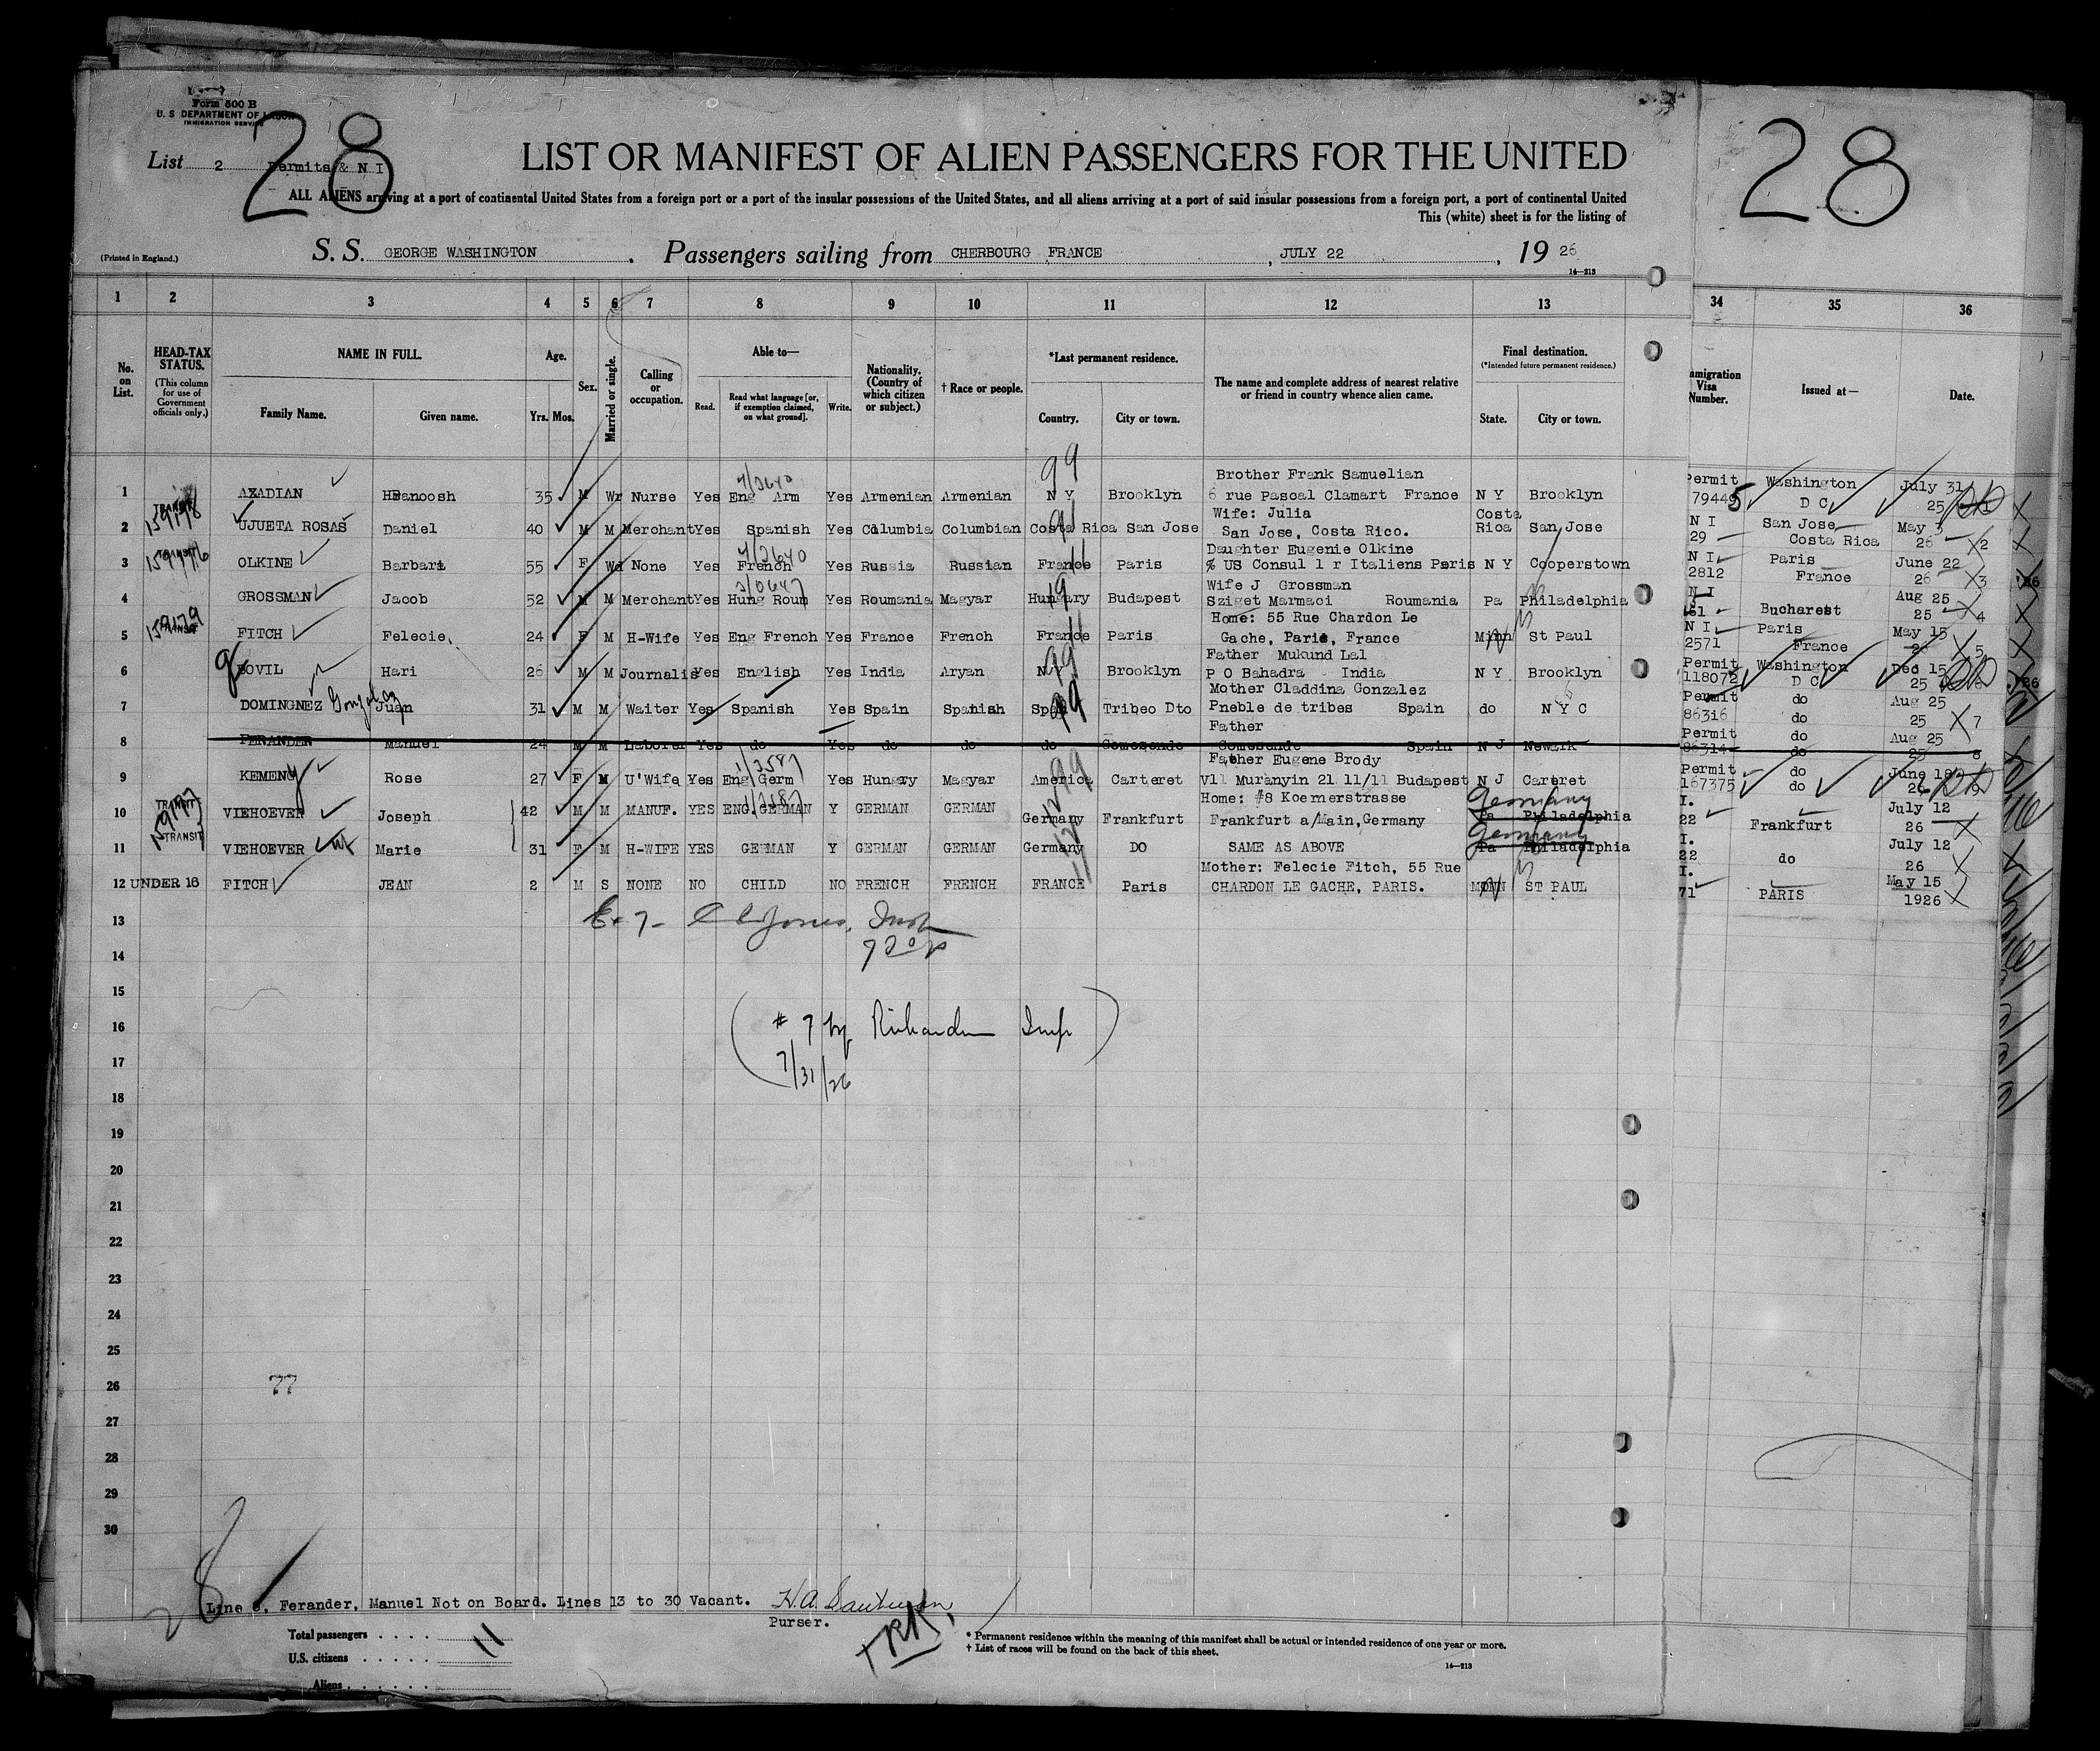 Form 500 B
U. S DEPARTMENT OF LABOR
IMMIGRATION SERVICE
28
28
List 2 Permits & N I
LIST OR MANIFEST OF ALIEN PASSENGERS FOR THE UNITED
ALL ALIENS arriving at a port of continental United States from a foreign port or a port of the insular possessions of the United States, and all aliens arriving at a port of said insular possessions from a foreign port, a port of continental United
This (white) sheet is for the listing of
(Printed in England.)
S. S. GEORGE WASHINGTON . Passengers sailing from CHERBOURG FRANCE , JULY 22 , 19 26
14—213
1 2 3 4 5 6 7 8 9 10 11 12 13 34 35 36
No. on List.
HEAD-TAX STATUS.
(This column for use of Government officials only.)
NAME IN FULL.
Family Name. Given name.
Age.
Yrs. Mos.
Sex.
Married or single.
Calling or occupation.
Able to—
Read. Read what language [or, if exemption claimed, on what ground]. Write.
Nationality. (Country of which citizen or subject.)
† Race or people.
*Last permanent residence.
Country. City or town.
The name and complete address of nearest relative or friend in country whence alien came.
Final destination.
(*Intended future permanent residence.)
State. City or town.
Immigration Visa Number.
Issued at—
Date.
Brother Frank Samuelian
1 AZADIAN Hranoosh 35 M Wr Nurse Yes Eng Arm Yes Armenian Armenian N Y Brooklyn 6 rue Pascal Clamart France N Y Brooklyn Permit 79449 Washington D C July 31 25
Wife: Julia
2 TRANSIT UJUETA ROSAS Daniel 40 M M Merchant Yes Spanish Yes Columbia Columbian Costa Rica San Jose San Jose, Costa Rico. Costa Rica San Jose N I 29 San Jose Costa Rica May 3 26
Daughter Eugenie Olkine
3 TRANSIT OLKINE Barbara 55 F Wd None Yes French Yes Russia Russian France Paris % US Consul 1 r Italiens Paris N Y Cooperstown N I 2812 Paris France June 22 26
Wife J Grossman
4 GROSSMAN Jacob 52 M M Merchant Yes Hung Roum Yes Roumania Magyar Hungary Budapest Sziget Marmaci Roumania Pa Philadelphia N I Bucharest Aug 25 25
Home: 55 Rue Chardon Le
5 TRANSIT FITCH Felecie 24 F M H-Wife Yes Eng French Yes France French France Paris Gache, Paris, France Minn St Paul N I 2571 Paris France May 15 26
Father Mukund Lal
6 GOVIL Hari 26 M M Journalis Yes English Yes India Aryan N Y Brooklyn P O Bahadra India N Y Brooklyn Permit 118072 Washington D C Dec 15 25
Mother Claddina Gonzalez
7 DOMINGNEZ Gonzalez Juan 31 M M Waiter Yes Spanish Yes Spain Spanish Spain Tribeo Dto Pneble de tribes Spain do N Y C Permit 86316 do do Aug 25 25
Father
8 FERANDER Manuel 24 M M Laborer Yes do Yes do do do Gomesende Gomesende Spain N J Newark Permit 86314 do do Aug 25 25
Father Eugene Brody
9 KEMENY Rose 27 F M U'Wife Yes Eng Germ Yes Hungry Magyar America Carteret Vll Muranyin 21 11/11 Budapest N J Carteret Permit 167375 do do June 18 26
Home: #8 Koernerstrasse
10 TRANSIT VIEHOEVER Joseph 42 M M MANUF. YES ENG. GERMAN Y GERMAN GERMAN Germany Frankfurt Frankfurt a/Main, Germany Germany Pa Philadelphia I. 22 Frankfurt July 12 26
11 TRANSIT VIEHOEVER Marie 31 F M H-WIFE YES GERMAN Y GERMAN GERMAN Germany DO SAME AS ABOVE Germany Pa Philadelphia I. 22 do July 12 26
Mother: Felecie Fitch, 55 Rue
12 UNDER 16 FITCH JEAN 2 M S NONE NO CHILD NO FRENCH FRENCH FRANCE Paris CHARDON LE GACHE, PARIS. ST PAUL I. 71 PARIS May 15 1926
13
14
15
16 # 7 by Insp
17 7/31/26
18
19
20
21
22
23
24
25
26 77
27
28
29
30
Line 8, Ferander, Manuel Not on Board. Lines 13 to 30 Vacant.
Purser.
Total passengers . . . . 11
U.S. citizens . . . . .
Aliens . . . . . .
* Permanent residence within the meaning of this manifest shall be actual or intended residence of one year or more.
† List of races will be found on the back of this sheet.
14—213